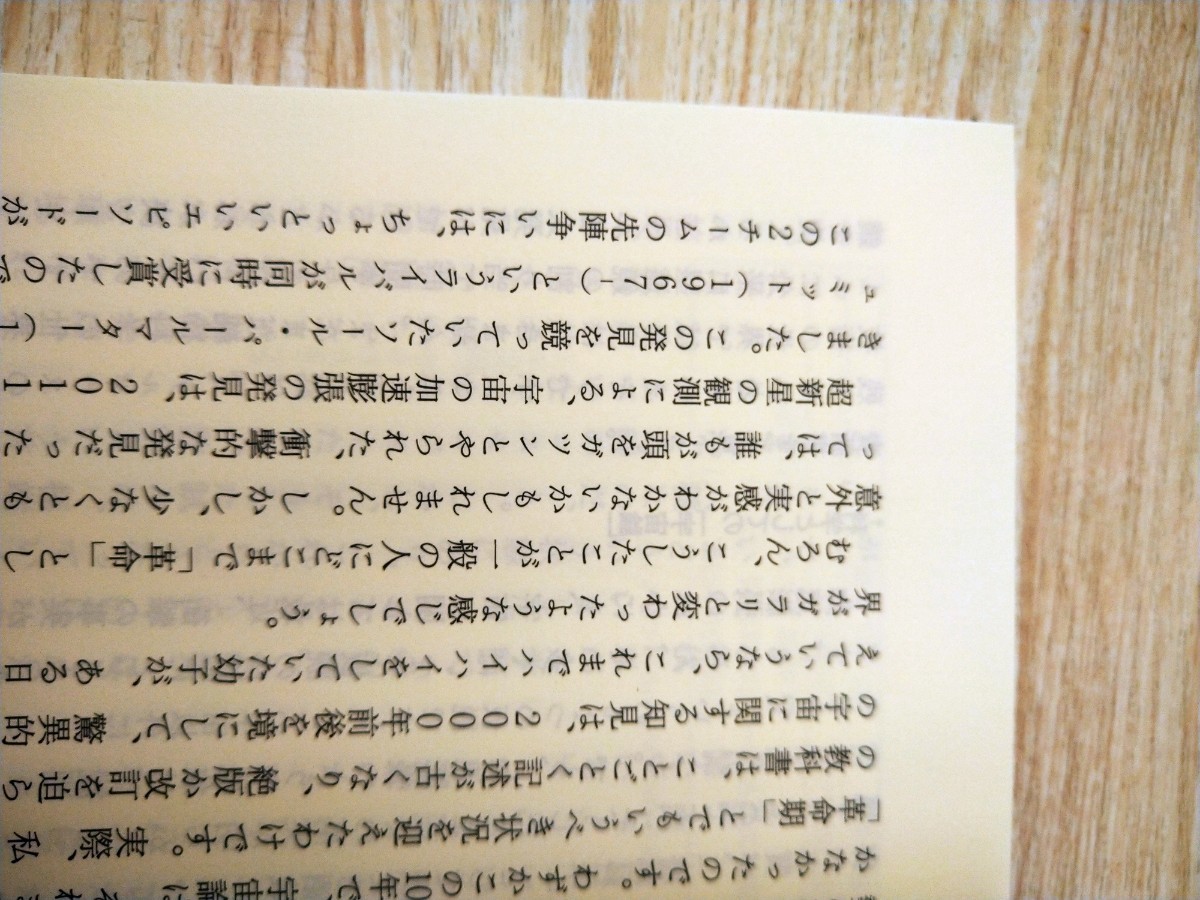 かなかったのです。わずかこの10年で、宇宙論は
「革命期」とでもいうべき状況を迎えたわけです。実際、私
の教科書は、ことごとく記述が古くなり、絶版か改訂を迫ら
の宇宙に関する知見は、2000年前後を境にして、驚異的
えていうなら、これまでハイハイをしていた幼子が、ある日
界がガラリと変わったような感じでしょう。
むろん、こうしたことが一般の人にどこまで「革命」とし
意外と実感がわかないかもしれません。しかし、少なくとも
っては、誰もが頭をガツンとやられた、衝撃的な発見だった
超新星の観測による、宇宙の加速膨張の発見は、2011
きました。この発見を競っていたソール・パールマター(1
ュミット(1967-)というライバルが同時に受賞したので
この2チームの先陣争いには、ちょっといいエピソードが